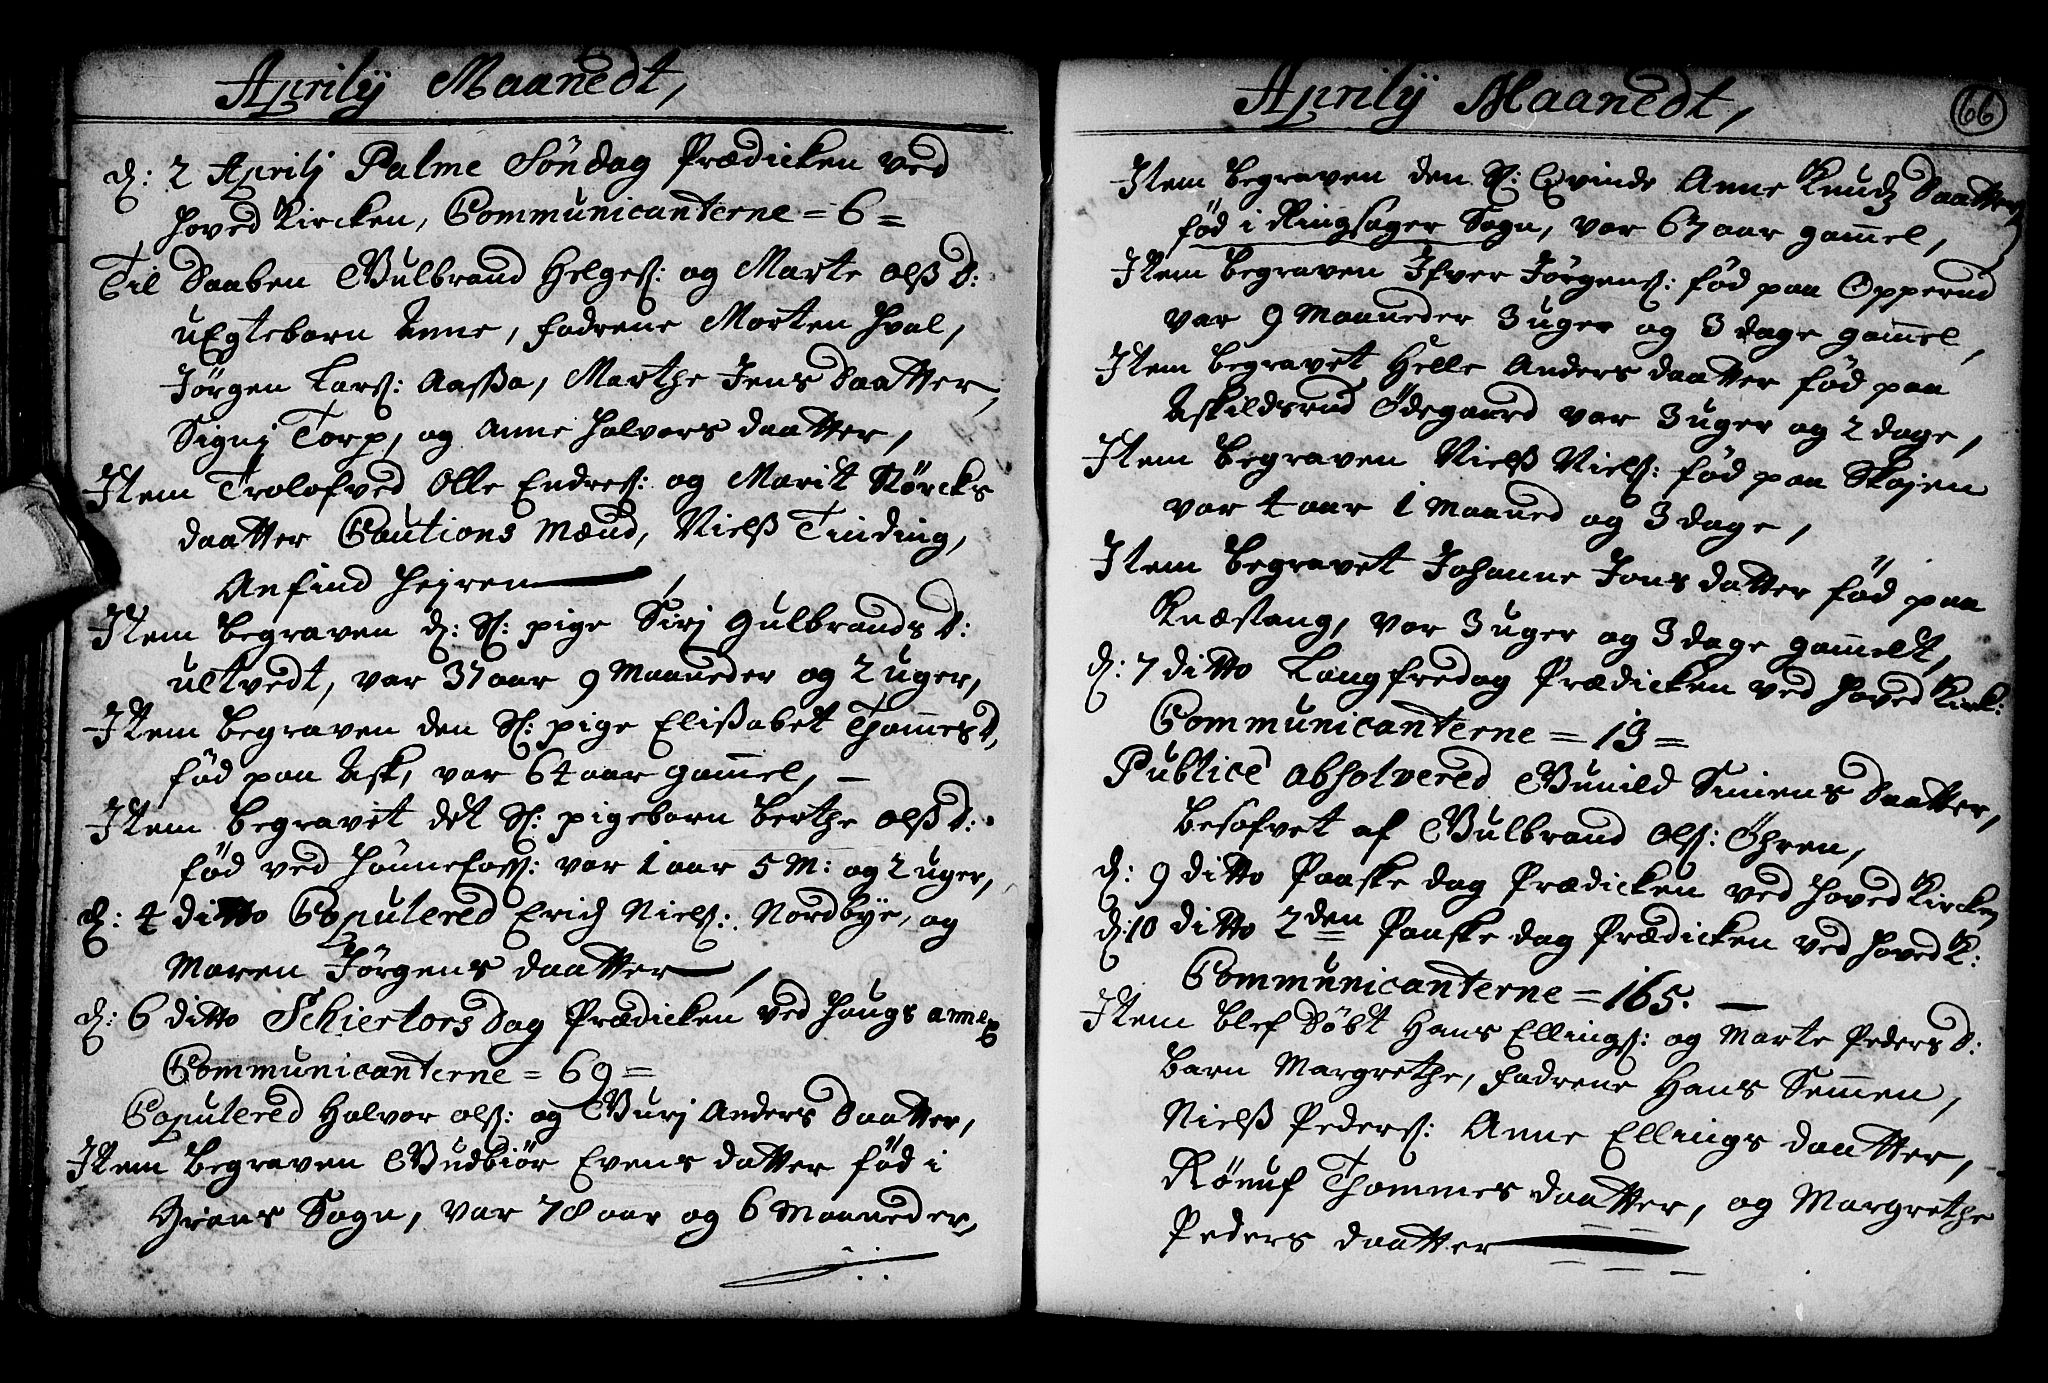 Aprilij Maanedt,
d: 2 Aprilj Palme Söndag Prædicken ved
Hoved Kircken, Communicanterne = 6 =
Til Daaben Gulbrand Helges: og Marte Olß D:
uEgtebarn Anne, fadrene Morten Hval,
Jörgen Lars: Aaßa, Marthe Jens Daatter,
Signj Torp, og Anne Halvors daatter,
Item Trolofved Olle Endres: og Marit Störcks
daatter Cautions Mænd, Nielß Tinding,
Anfind Hejren
Item begraven d: Sl: pige Sirj Gulbrands D:
ultvedt, var 37 aar 9 Maaneder og 2 uger,
Item begraven den Sl: pige Elißabet Thom̄es D,
föd paa Ask, var 64 aar gam̄el, —
Item begravet det Sl: pigebarn Berthe Olß D:
föd ved Hönnefoss: var 1 aar 5 M: og 2 uger,
d: 4 ditto Copulered Erich Niels: Nordbye, og
Maren Jörgens daatter
d: 6 ditto Schiertorsdag Prædicken ved Haugs annex
Communicanterne = 69 =
Copulered Halvor Ols: og Gurj Anders Daatter,
Item begraven Gudbiör Evens datter föd i
Grans Sogn, var 78 aar og 6 Maaneder,
Aprilij Maanedt,
66
Item begraven den Sl: Qvinde Anne Knudz Daatter,
föd i Ringsager Sogn, var 67 aar gam̄el,
Item begraven Ifver Jörgens: föd paa Opperud
var 9 Maaneder 3 uger og 3 dage gam̄el,
Item begravet Helle Anders daatter föd paa
Askildsrud Ödegaard var 3 uger og 2 dage,
Item begraven Nielß Niels: föd paa Skojen
var 4 aar 1 Maaned og 3 dage,
Item begravet Johanne Jons datter föd paa
Knæstang, var 3 uger og 3 dage gam̄elt,
d: 7 ditto Langfredag Prædicken ved Hoved Kirk:
Communicanterne = 13 =
Publicè absolvered Gunild Simens Daatter,
besofvet af Gulbrand Ols: Öhren,
d: 9 ditto Paaske dag Prædicken ved Hoved Kircken
d: 10 ditto 2den Paaske dag Prædicken ved Hoved K:
Communicanterne = 165. —
Item blef Döbt Hans Ellings: og Marte Peders D:
barn Margrethe, fadrene Hans Sem̄en,
Nielß Peders: Anne Ellings daatter,
Rönuf Thommes daatter, og Margrethe
Peders daatter